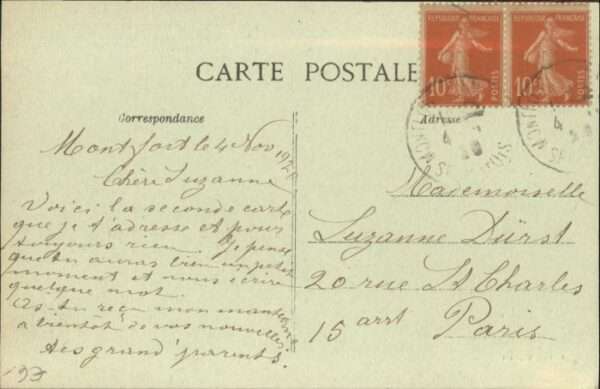 REPUBLIQUE FRANÇAISE
REPUBLIQUE FRANÇAISE
10c POSTES
10c POSTES
CARTE POSTALE
Correspondance
Adresse
Montfort le 4 Nov
Chère Suzanne
Voici la seconde carte
que je t'adresse et pour
toujours rien. Je pense
que tu auras bien un petit
moment et nous écrire
quelque mot.
As-tu reçu mon
a bientôt de vos nouvelles.
tes grand'parents.
Mademoiselle
Suzanne Dürst
20 rue St Charles
15 arrt Paris